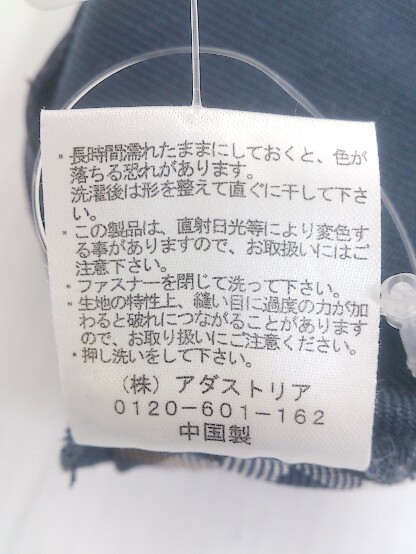 ・長時間濡れたままにしておくと、色が
落ちる恐れがあります。
洗濯後は形を整えて直ぐに干して下さ
い。
・この製品は、直射日光等により変色す
る事がありますので、お取扱いにはご
注意下さい。
・ファスナーを閉じて洗って下さい。
・生地の特性上、縫い目に過度の力が加
わると破れにつながることがあります
ので、お取り扱いにご注意ください。
・押し洗いをして下さい。
（株）アダストリア
0120-601-162
中国製